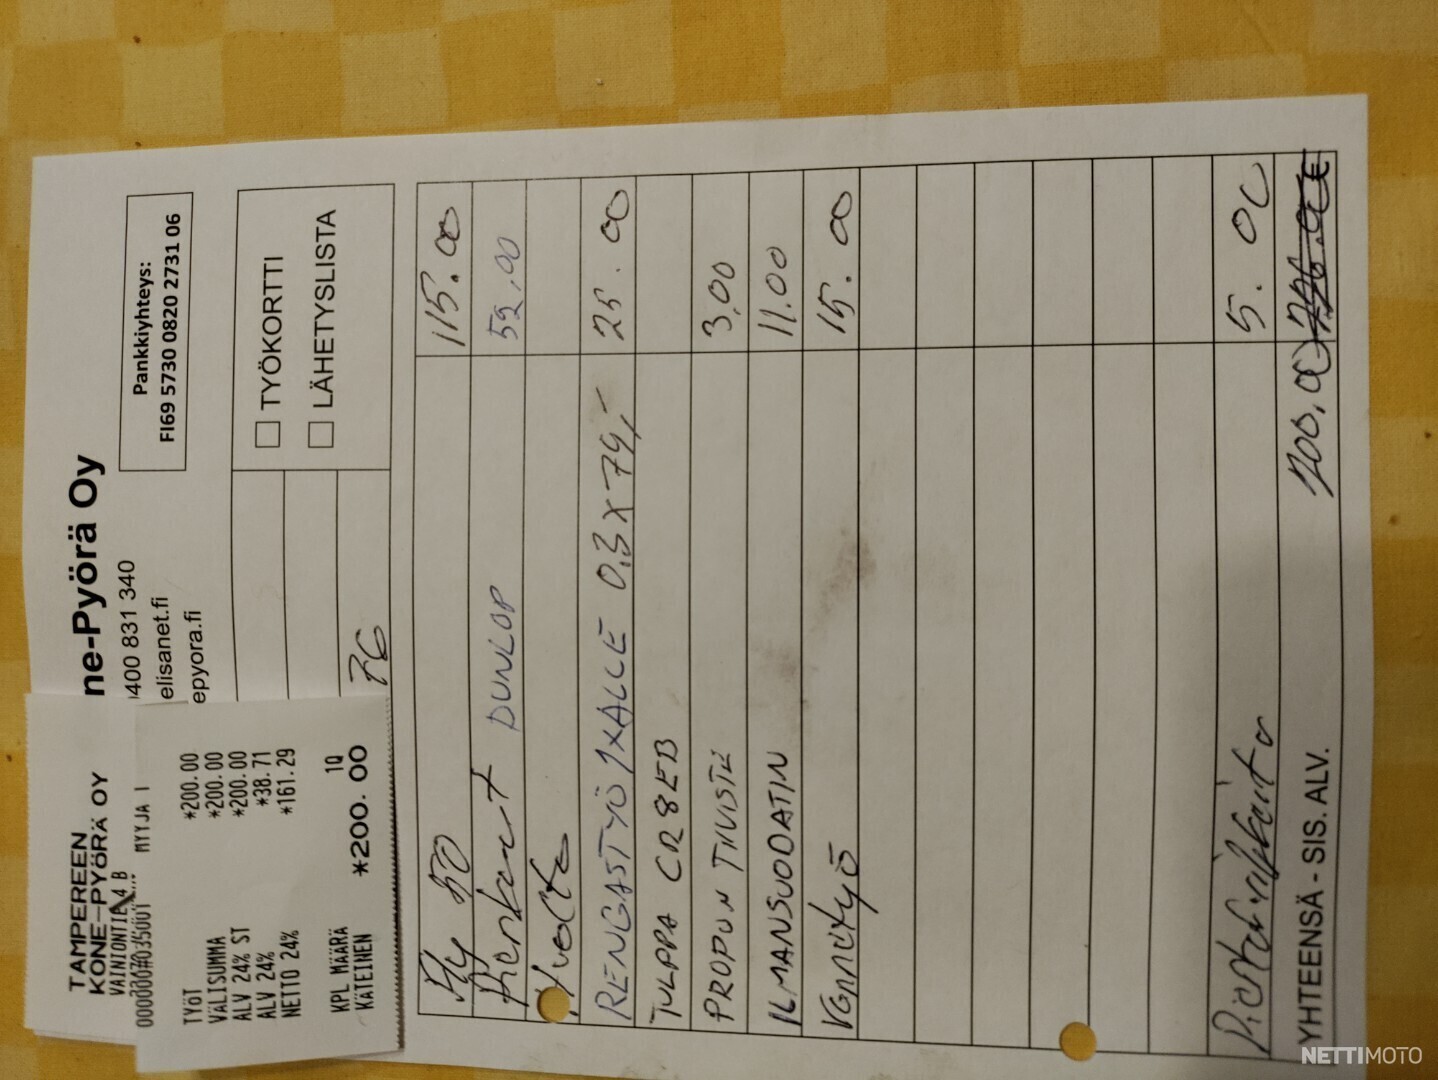 ne-Pyörä Oy
Pankkiyhteys:
FI69 5730 0820 2731 06
0400 831 340
elisanet.fi
epyora.fi
TYÖKORTTI
LÄHETYSLISTA
TAMPEREEN
KONE-PYÖRÄ OY
VAINIONTIE 4 B
MYYJA 1
TYÖT *200.00
VÄLISUMMA *200.00
ALV 24% ST *200.00
ALV 24% *38.71
NETTO 24% *161.29
KPL MÄÄRÄ 1Q
KÄTEINEN *200.00
Py 50 115.00
DUNLOP 52,00
Huolto
RENGASTYÖ 1XALLE 0,3 x 79,- 25.00
TULPPA CR8EB
PROPUN TIIVISTE 3,00
ILMANSUODATIN 11.00
15.00
Pientarvikkeita 5.00
YHTEENSÄ - SIS. ALV. 200,00
NETTIMOTO